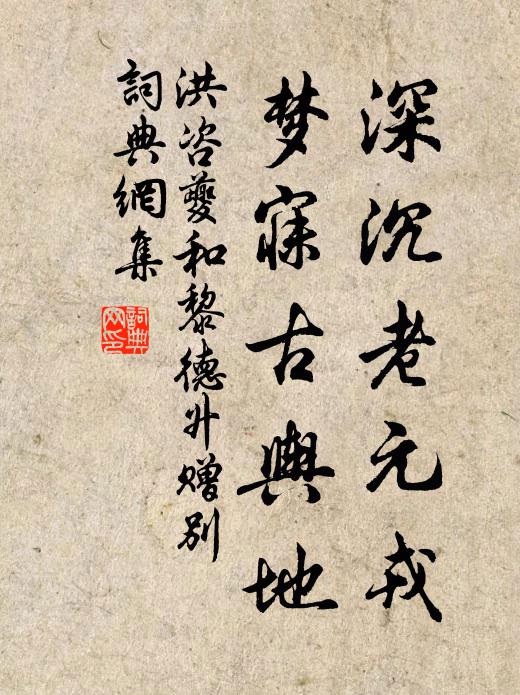 深沉老元戎
梦寐古舆地
洪咨夔和黎德升赠别
詞典網集
詞典
网印